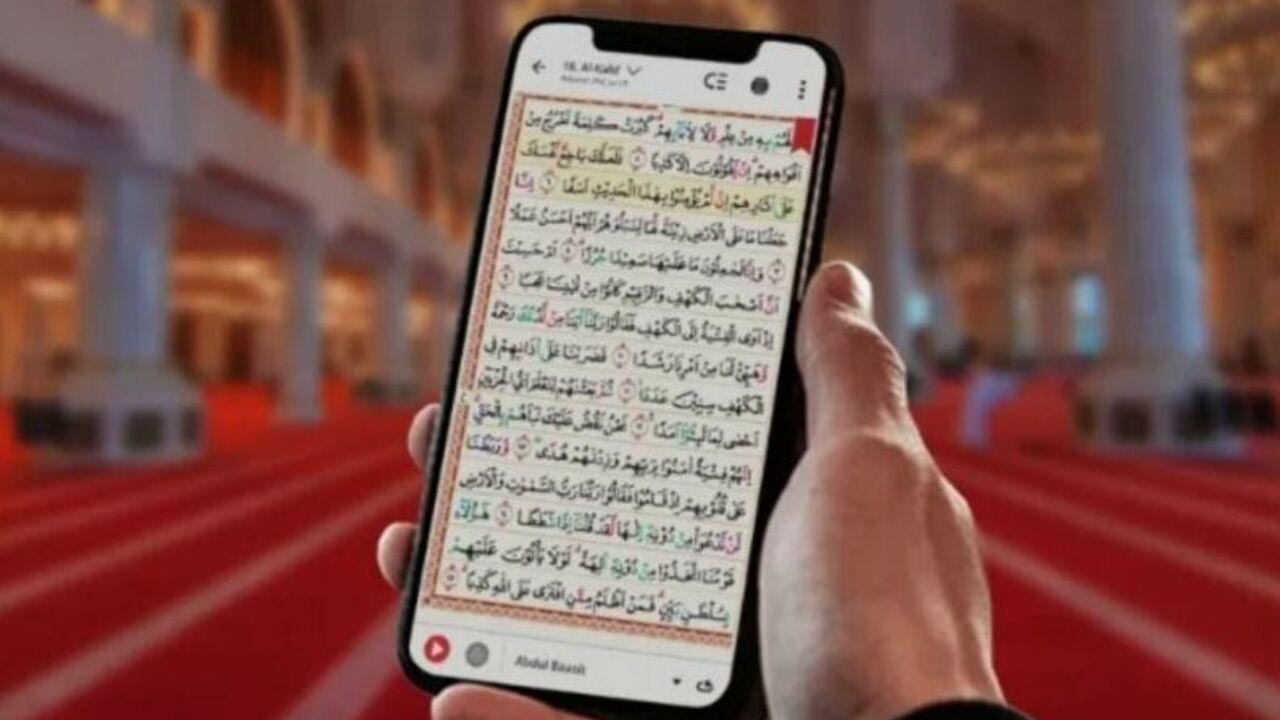 18. Al-Kahf
لَهُمْ بِهِ مِنْ عِلْمٍ وَلَا لِآبَائِهِمْ كَبُرَتْ كَلِمَةً تَخْرُجُ مِنْ
أَفْوَاهِهِمْ إِنْ يَقُولُونَ إِلَّا كَذِبًا ٥ فَلَعَلَّكَ بَاخِعٌ نَفْسَكَ
عَلَى آثَارِهِمْ إِنْ لَمْ يُؤْمِنُوا بِهَذَا الْحَدِيثِ أَسَفًا ٦ إِنَّا
جَعَلْنَا مَا عَلَى الْأَرْضِ زِينَةً لَهَا لِنَبْلُوَهُمْ أَيُّهُمْ أَحْسَنُ عَمَلًا
٧ وَإِنَّا لَجَاعِلُونَ مَا عَلَيْهَا صَعِيدًا جُرُزًا ٨ أَمْ حَسِبْتَ
أَنَّ أَصْحَبَ الْكَهْفِ وَالرَّقِيمِ كَانُوا مِنْ آيَتِنَا عَجَبًا ٩
إِذْ أَوَى الْفِتْيَةُ إِلَى الْكَهْفِ فَقَالُوا رَبَّنَا آتِنَا مِنْ لَدُنْكَ رَحْمَةً
وَهَيِّئْ لَنَا مِنْ أَمْرِنَا رَشَدًا ١٠ فَضَرَبْنَا عَلَى آذَانِهِمْ فِي
الْكَهْفِ سِنِينَ عَدَدًا ١١ ثُمَّ بَعَثْنَهُمْ لِنَعْلَمَ أَيُّ الْحِزْبَيْنِ
أَحْصَى لِمَا لَبِثُوا أَمَدًا ١٢ نَحْنُ نَقُصُّ عَلَيْكَ نَبَأَهُمْ بِالْحَقِّ
إِنَّهُمْ فِتْيَةٌ آمَنُوا بِرَبِّهِمْ وَزِدْنَهُمْ هُدًى ١٣ وَرَبَطْنَا
عَلَى قُلُوبِهِمْ إِذْ قَامُوا فَقَالُوا رَبُّنَا رَبُّ السَّمَوَتِ وَالْأَرْضِ
لَنْ نَدْعُوَا مِنْ دُونِهِ إِلَهًا لَقَدْ قُلْنَا إِذًا شَطَطًا ١٤ هَؤُلَاءِ
قَوْمُنَا اتَّخَذُوا مِنْ دُونِهِ آلِهَةً لَوْلَا يَأْتُونَ عَلَيْهِمْ
بِسُلْطَنٍ بَيِّنٍ فَمَنْ أَظْلَمُ مِمَّنِ افْتَرَى عَلَى اللَّهِ كَذِبًا ١٥
Abdul Baasit